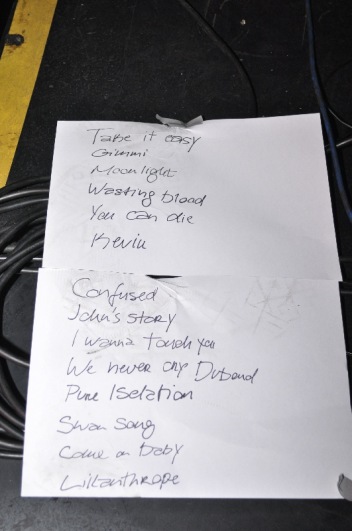 Take it easy
Gimmi
Moonlight
Wasting blood
You can die
Kevin
Confused
John's story
I wanna touch you
We never cry
Pure Isolation
Swan Song
Come on baby
Likanthrope